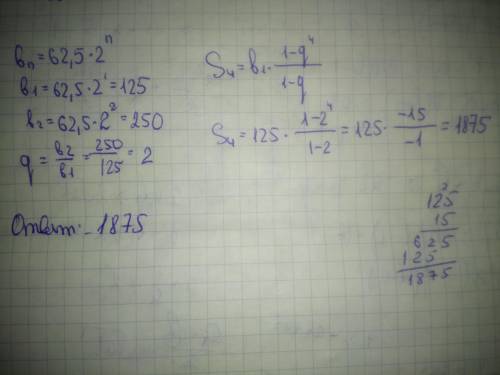 bn = 62,5 · 2^n
b1 = 62,5 · 2^1 = 125
b2 = 62,5 · 2^2 = 250
q = b2/b1 = 250/125 = 2
Ответ: 1875
S4 = b1 · (1-q^4)/(1-q)
S4 = 125 · (1-2^4)/(1-2) = 125 · (-15)/(-1) = 1875
2
125
15
625
125
1875